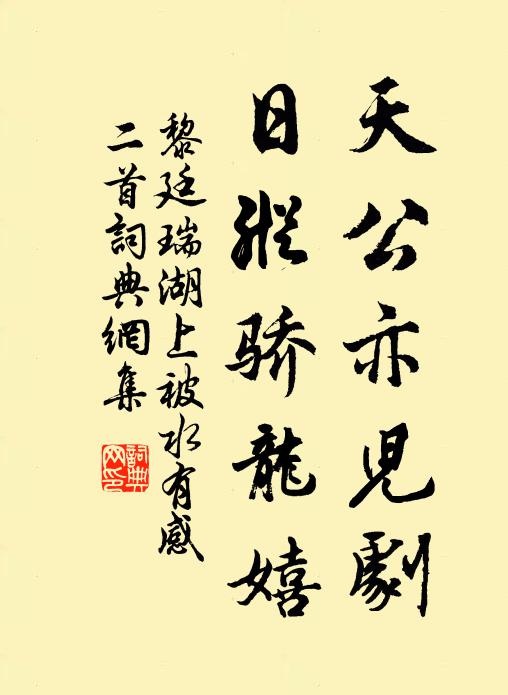 天公亦児劇
日縱骄龍嬉
黎廷瑞湖上被水有感
二首詞典網集
詞典
网印